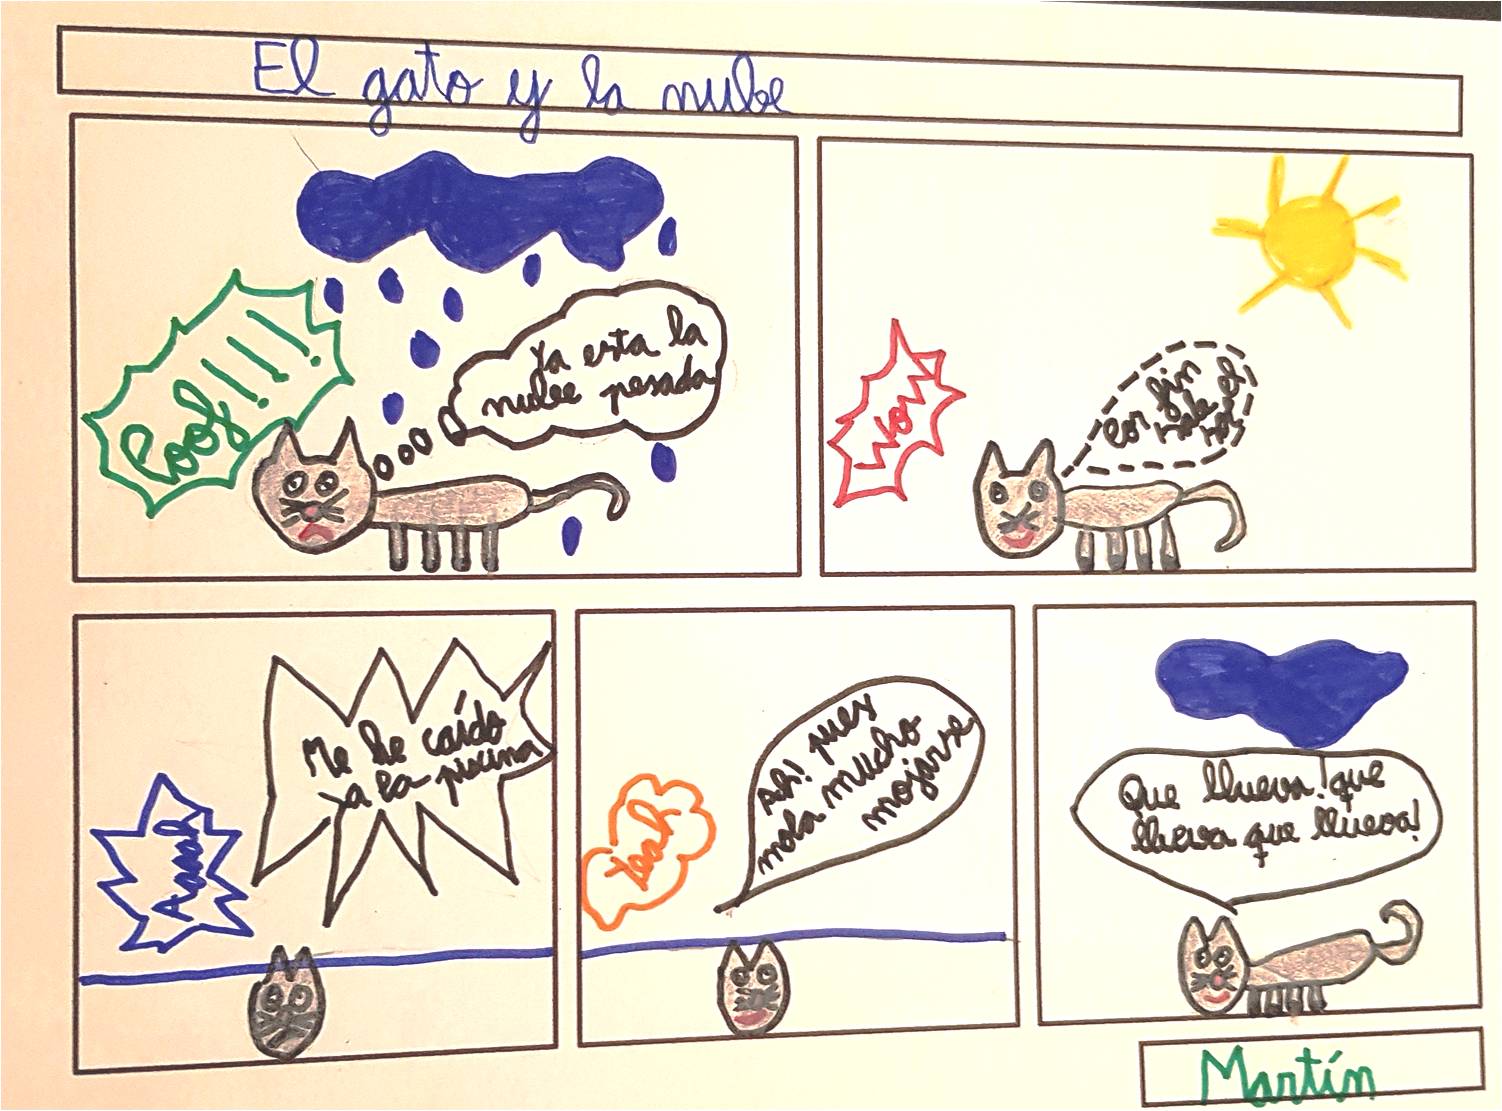 El gato y la nube
Poof!!!
Ya esta la
nube pesada
Wow
Por fin
sale el
sol
Aaaah
Me he caído
a la piscina
Yeah
Ah! pues
mola mucho
mojarse
Que llueva! que
llueva que llueva!
Martín